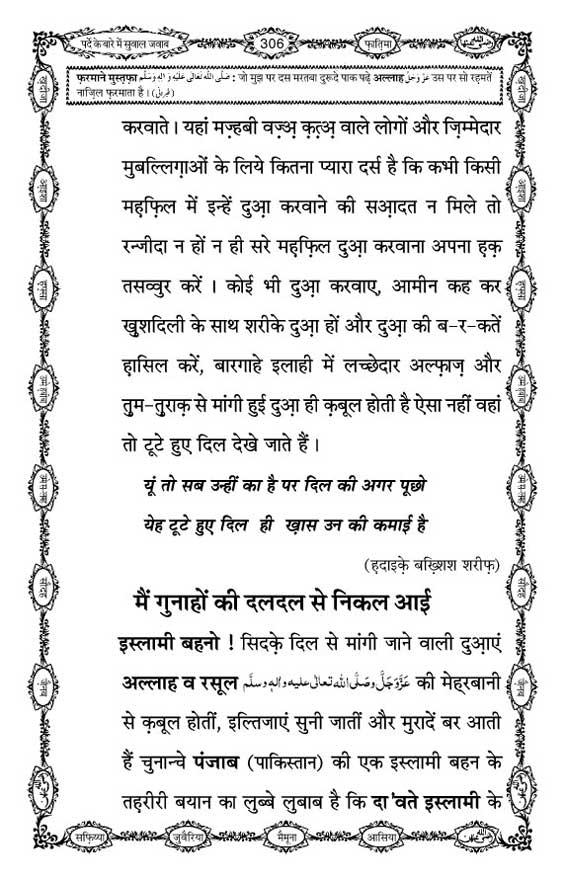 पर्दे के बारे में सुवाल जवाब 306 फ़ातिमा
फ़रमाने मुस्तफ़ा صَلَّى اللهُ تَعَالٰى عَلَيْهِ وَاٰلِهٖ وَسَلَّم : जो मुझ पर दस मरतबा दुरूदे पाक पढ़े अल्लाह عَزَّوَجَلَّ उस पर सो रह़मतें
नाज़िल फ़रमाता है । (طبرانی)
करवाते । यहां मज़्हबी वज़्अ़ क़त़्अ़ वाले लोगों और ज़िम्मेदार
मुबल्लिग़ाओं के लिये कितना प्यारा दर्स है कि कभी किसी
मह़फ़िल में इन्हें दुआ़ करवाने की सआ़दत न मिले तो
रन्जीदा न हों न ही सरे मह़फ़िल दुआ़ करवाना अपना ह़क़
तसव्वुर करें । कोई भी दुआ़ करवाए, आमीन कह कर
ख़ुशदिली के साथ शरीके दुआ़ हों और दुआ़ की ब-र-कतें
ह़ासिल करें, बारगाहे इलाही में लच्छेदार अल्फ़ाज़ और
त़ुम-त़ुराक़ से मांगी हुई दुआ़ ही क़बूल होती है ऐसा नहीं वहां
तो टूटे हुए दिल देखे जाते हैं ।
यूं तो सब उन्हीं का है पर दिल की अगर पूछो
येह टूटे हुए दिल ही ख़ास उन की कमाई है
(ह़दाइक़े बख़्शिश शरीफ़)
मैं गुनाहों की दलदल से निकल आई
इस्लामी बहनो ! सिदक़े दिल से मांगी जाने वाली दुआ़एं
अल्लाह व रसूल عَزَّوَجَلَّ وصَلَّى اللهُ تعالٰى عليه واٰلهٖ وسلَّم की मेहरबानी
से क़बूल होतीं, इल्तिजाएं सुनी जातीं और मुरादें बर आती
हैं चुनान्चे पंजाब (पाकिस्तान) की एक इस्लामी बहन के
तह़रीरी बयान का लुब्बे लुबाब है कि दा'वते इस्लामी के
सफ़िय्या जुवैरिया मैमूना आसिया